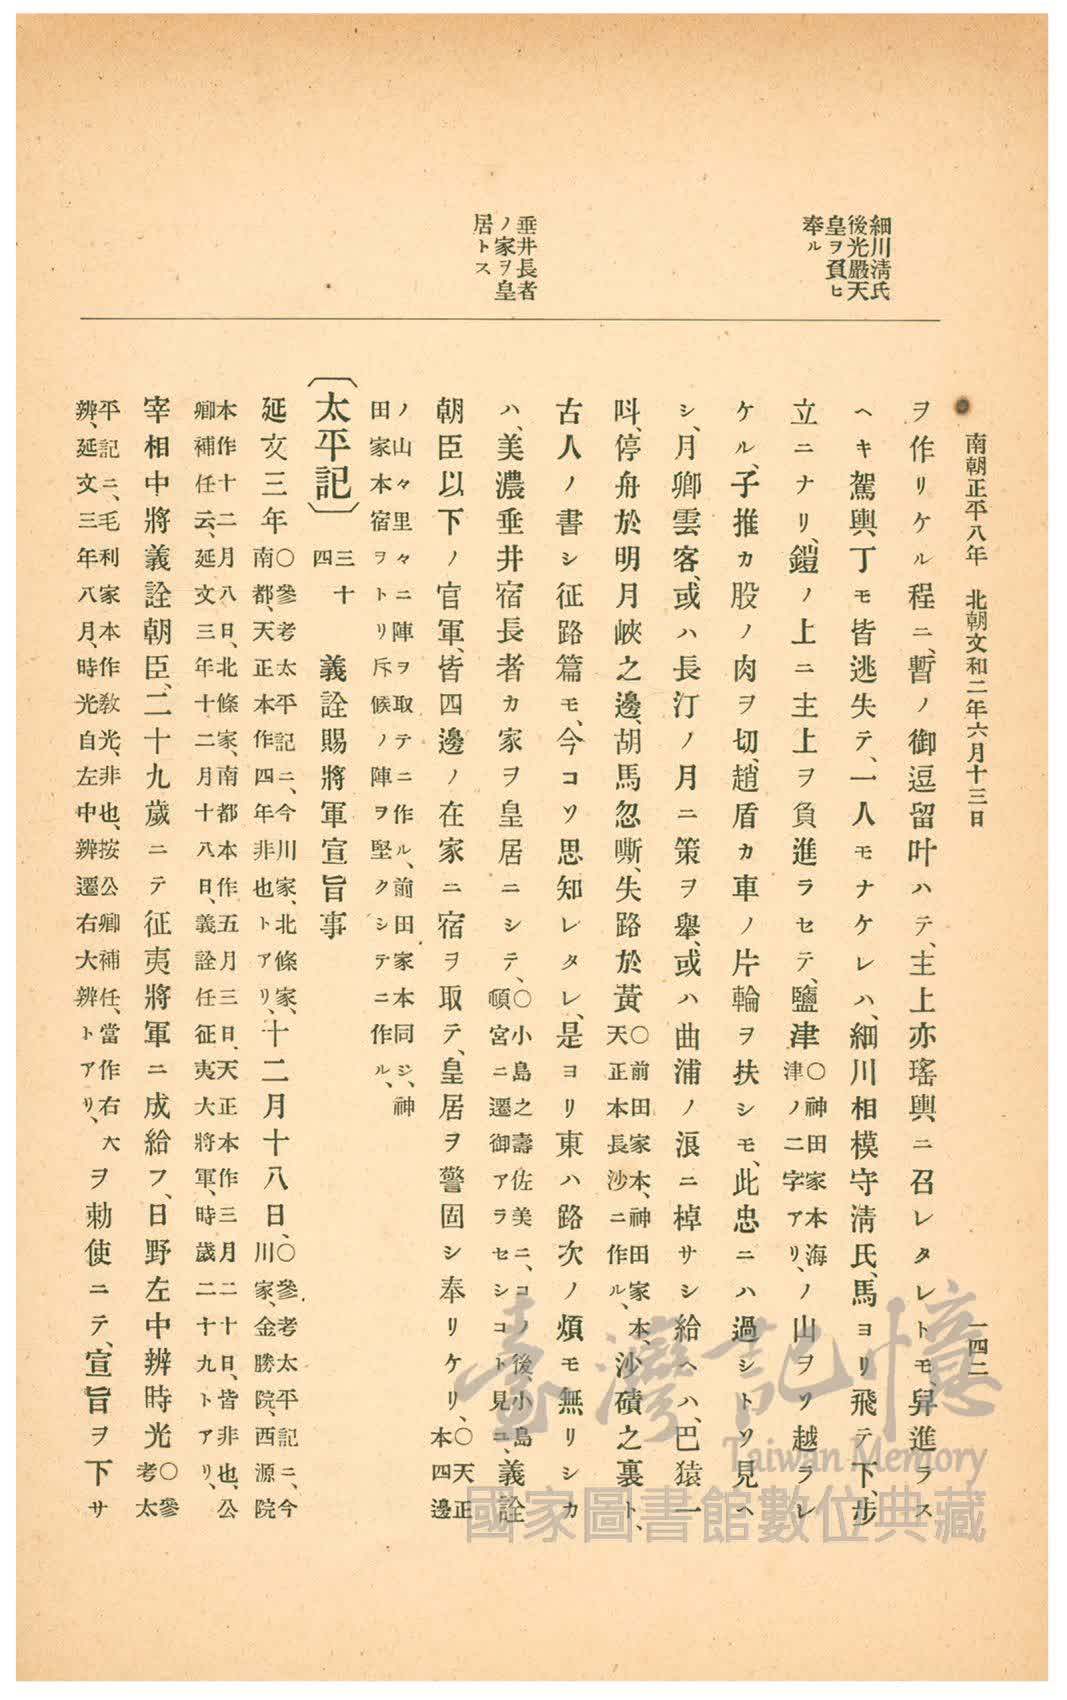 南朝正平八年 北朝文和二年六月十三日
一四二
細川淸氏
後光嚴天
皇ヲ負ヒ
奉ル
垂井長者
ノ家ヲ皇
居トス
ヲ作リケル程ニ、暫ノ御逗留叶ハテ、主上亦瑤輿ニ召レタレトモ、舁進ラス
ヘキ駕輿丁モ皆逃失テ、一人モナケレハ、細川相模守淸氏、馬ヨリ飛テ下、步
立ニナリ、鎧ノ上ニ主上ヲ負進ラセテ、鹽津〇神田家本海津ノ二字アリ、ノ山ヲソ越ラレ
ケル、子推カ股ノ肉ヲ切、趙盾カ車ノ片輪ヲ扶シモ、此忠ニハ過シトソ見ヘ
シ、月卿雲客、或ハ長汀ノ月ニ策ヲ擧、或ハ曲浦ノ浪ニ棹サシ給ヘハ、巴猿一
叫、停舟於明月峽之邊、胡馬忽嘶、失路於黃〇前田家本、神田家本、天正本長沙ニ作ル、沙磧之裏ト、
古人ノ書シ征路篇モ、今コソ思知レタレ、是ヨリ東ハ路次ノ煩モ無リシカ
ハ、美濃垂井宿長者カ家ヲ皇居ニシテ、〇小島之壽佐美ニ、コノ後、小島頓宮ニ遷御アラセシコト見ユ、義詮
朝臣以下ノ官軍、皆四邊ノ在家ニ宿ヲ取テ、皇居ヲ警固シ奉リケリ、〇天正本四邊
ノ山々里々ニ陣ヲ取テニ作ル、前田家本同シ、神
田家本宿ヲトリ斥候ノ陣ヲ堅クシテニ作ル、
〔太平記〕三十四 義詮賜將軍宣旨事
延文三年〇參考太平記ニ、今川家、北條家、南都、天正本作四年非也トアリ、十二月十八日、〇參考太平記ニ、今川家、金勝院、西源院
本作十二月八日、北條家、南都本作五月三日、天正本作三月二十日、皆非也、公
卿補任云、延文三年十二月十八日、義詮任征夷大將軍、時歲二十九トアリ、
宰相中將義詮朝臣、二十九歲ニテ征夷將軍ニ成給フ、日野左中辨時光〇參考太
平記ニ、毛利家本作敎光、非也、按公卿補任、當作右大
辨、延文三年八月、時光自左中辨遷右大辨トアリ、ヲ勅使ニテ、宣旨ヲ下サ
臺灣記憶
Taiwan Memory
國家圖書館數位典藏